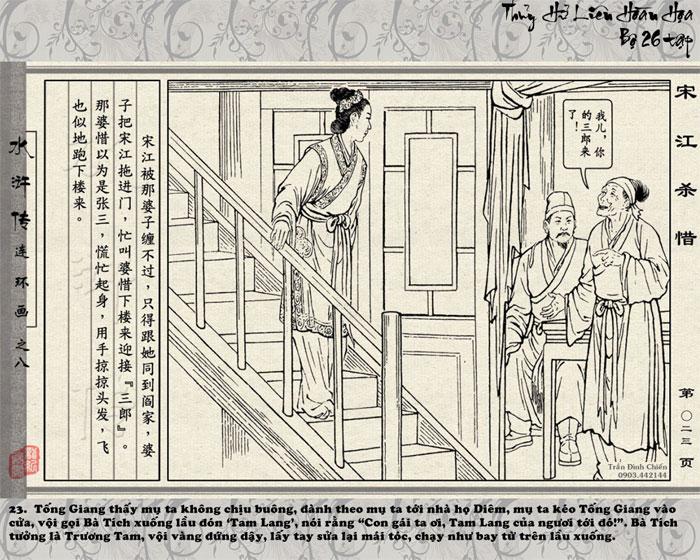 Thủy Hử Liên Hoàn Họa
Bộ 26 tập
宋江杀惜
第〇二三页
水浒传连环画之八
宋江被那婆子缠不过，只得跟她同到阎家，婆
子把宋江拖进门，忙叫婆惜下楼来迎接『三郎』。
那婆惜以为是张三，慌忙起身，用手掠掠头发，飞
也似地跑下楼来。
我儿，你
的三郎来
了！
Trần Đình Chiến
0903.442144
23. Tống Giang thấy mụ ta không chịu buông, đành theo mụ ta tới nhà họ Diêm, mụ ta kéo Tống Giang vào
cửa, vội gọi Bà Tích xuống lầu đón ‘Tam Lang’, nói rằng “Con gái ta ơi, Tam Lang của ngươi tới đó!”. Bà Tích
tưởng là Trương Tam, vội vàng đứng dậy, lấy tay sửa lại mái tóc, chạy như bay từ trên lầu xuống.